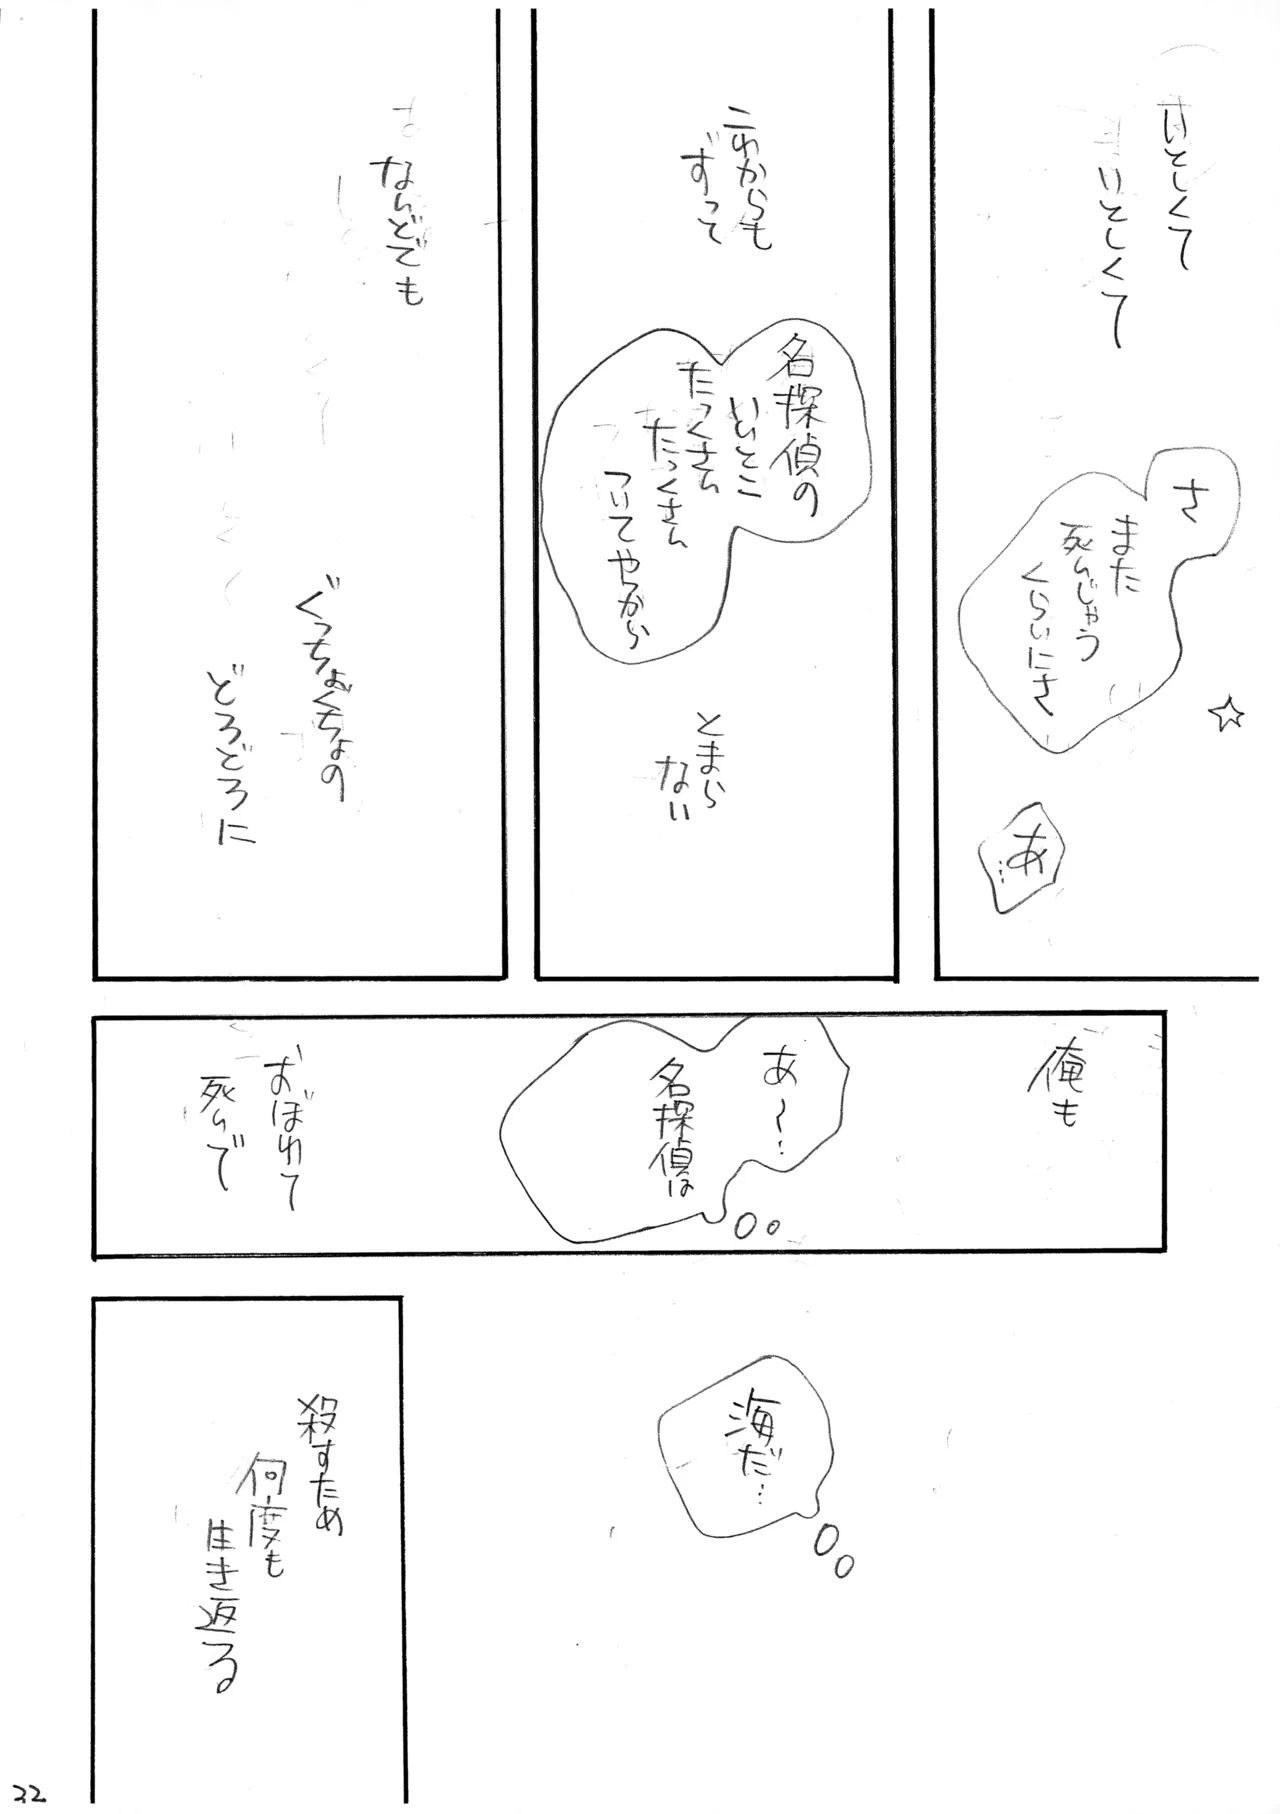 いとしくて
いとしくて
さ
また
死んじゃう
くらいにさ
あ…
これからも
ずって
名探偵の
いいとこ
たっくさん
たっくさん
ついてやっから
とまら
ない
なんどでも
ぐっちょぐちょの
どろどろに
俺も
あ〜…
名探偵は
おぼれて
死んで
海だ…
殺すため
何度も
生き返る
32